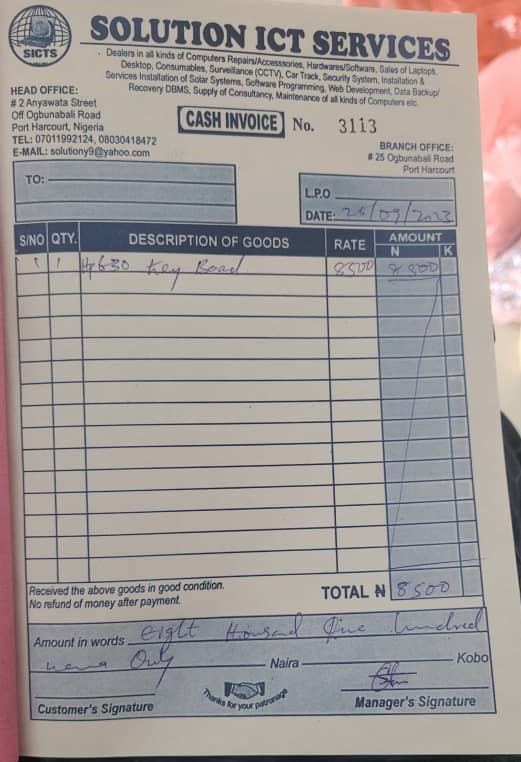 SICTS
SOLUTION ICT SERVICES
Dealers in all kinds of Computers Repairs/Accesssories, Hardwares/Software, Sales of Laptops,
Desktop, Consumables, Surveillance (CCTV), Car Track, Security System, Installation &
Services Installation of Solar Systems, Software Programming, Web Development, Data Backup/
Recovery DBMS, Supply of Consultancy, Maintenance of all kinds of Computers etc.
HEAD OFFICE:
# 2 Anyawata Street
Off Ogbunabali Road
Port Harcourt, Nigeria
TEL: 07011992124, 08030418472
E-MAIL: solutiony9@yahoo.com
CASH INVOICE No. 3113
BRANCH OFFICE:
# 25 Ogbunabali Road
Port Harcourt
TO:
L.P.O
DATE: /09/2023
S/NO QTY. DESCRIPTION OF GOODS RATE AMOUNT
N K
1 1 Hp 630 Key Board 8500 8500
Received the above goods in good condition.
No refund of money after payment.
TOTAL ₦ 8500
Amount in words eight thousand five hundred
Only Naira Kobo
Customer's Signature
Thanks for your patronage
Manager's Signature